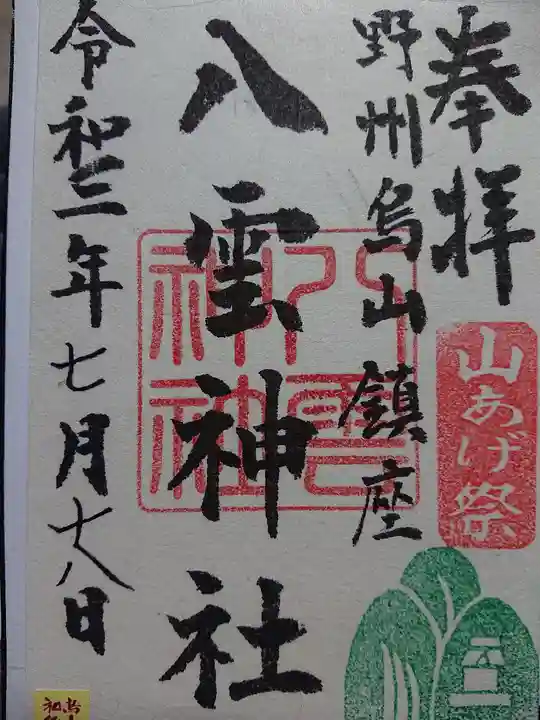 奉拝
山あげ祭
野州烏山鎮座
八雲神社
八雲神社
令和三年七月十八日